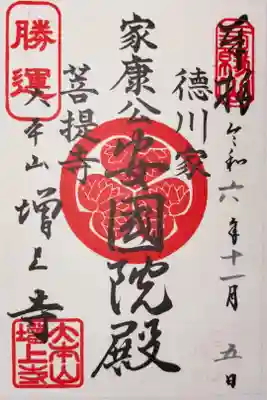 奉拝
令和六年十一月五日
徳川家
家康公安國院殿
菩提寺
勝運
大本山増上寺
大本山
増上寺